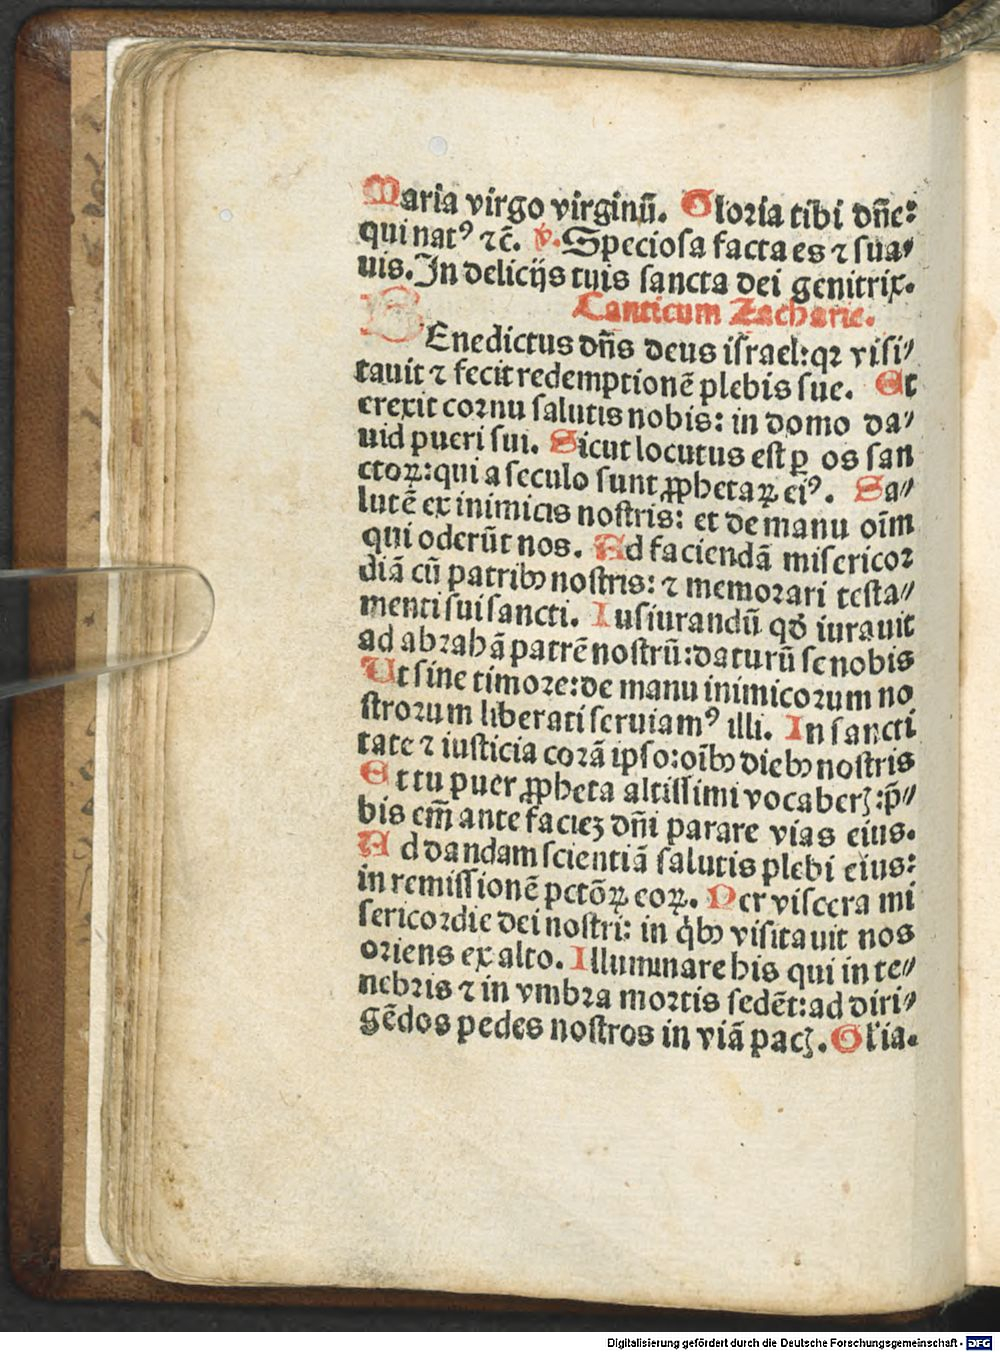 Maria virgo virginū. Gloria tibi dn̄e:
qui natꝰ ⁊c̄. ℣. Speciosa facta es ⁊ sua⸗
uis. In delicijs tuis sancta dei genitrix.
Canticum Zacharie.
BEnedictus dn̄s deus israel: qꝛ visi⸗
tauit ⁊ fecit redemptionē plebis sue. Et
erexit cornu salutis nobis: in domo da⸗
uid pueri sui. Sicut locutus est ꝑ os san
ctoꝝ: qui a seculo sunt ꝓphetaꝝ eiꝰ. Sa⸗
lutē ex inimicis nostris: et de manu oīm
qui oderūt nos. Ad faciendā misericor
diā cū patribꝰ nostris: ⁊ memorari testa⸗
menti sui sancti. Iusiurandū qd̓ iurauit
ad abrahā patrē nostrū: daturū se nobis
Ut sine timore: de manu inimicorum no
strorum liberati seruiamꝰ illi. In sancti
tate ⁊ iusticia corā ipso: oībꝰ diebꝰ nostris
Et tu puer ꝓpheta altissimi vocaberꝭ: p̄⸗
bis em̄ ante faciē dn̄i parare vias eius.
Ad dandam scientiā salutis plebi eius:
in remissionē pctōꝝ eoꝝ. Per viscera mi
sericordie dei nostri: in qͥbꝰ visitauit nos
oriens ex alto. Illuminare his qui in te⸗
nebris ⁊ in vmbra mortis sedēt: ad diri⸗
gēdos pedes nostros in viā pacꝭ. Gl'ia.
Digitalisierung gefördert durch die Deutsche Forschungsgemeinschaft - DFG